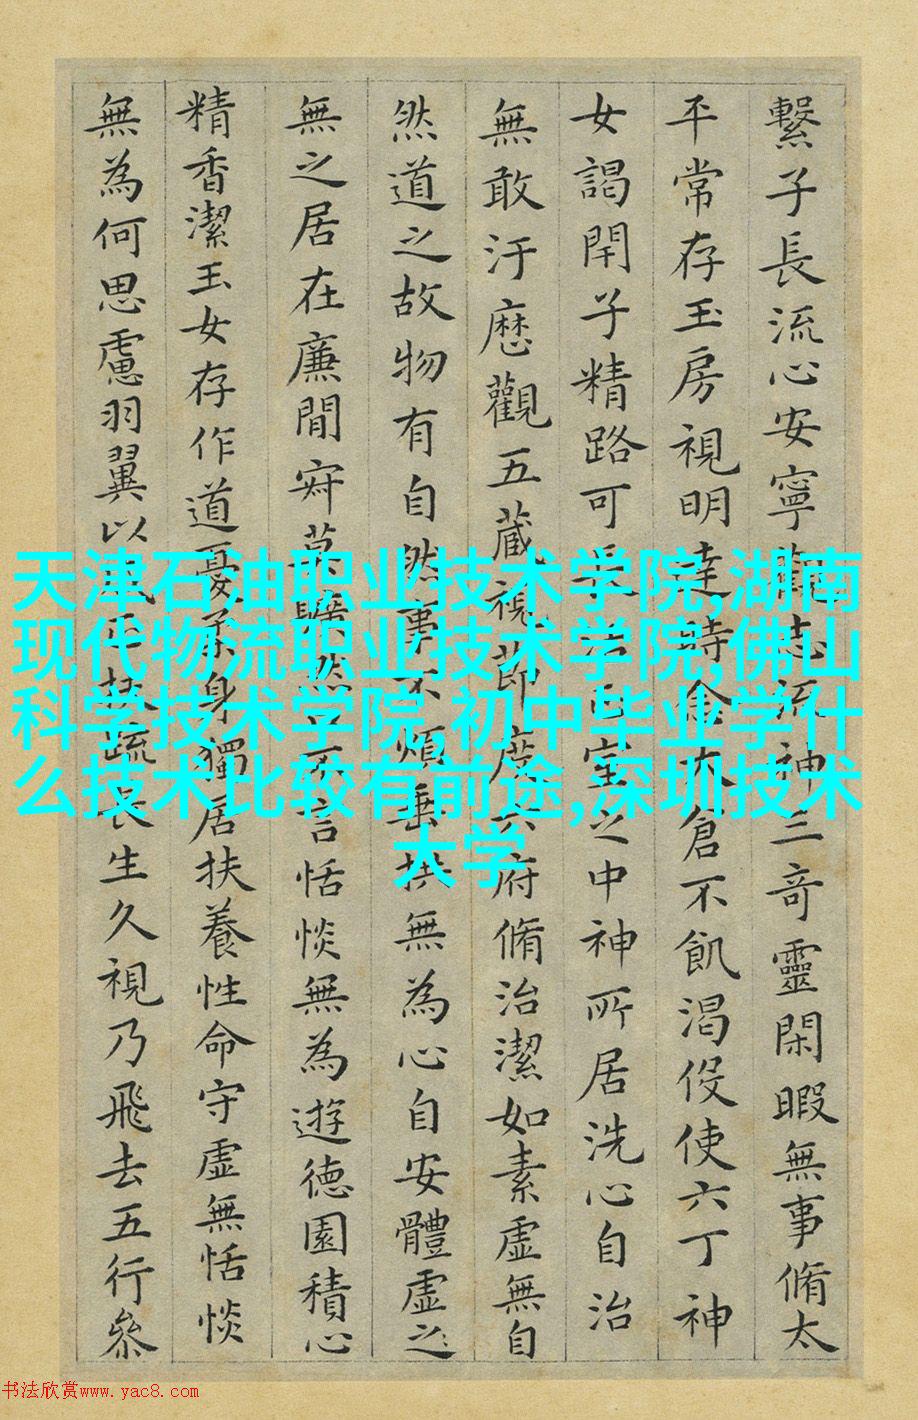 繫子長流心安寧觀志流神三奇靈閑暇無事脩太
平常存玉房視明達時念大倉不飢渴役使六丁神
女謁閇子精路可長活正室之中神所居洗心自治
無敢汙歷觀五藏視節度六府脩治潔如素虛無自
然道之故物有自然事不煩垂拱無為心自安體虛之
無之居在廉間寂莫曠然口不言恬惔無為遊德園積心
精香潔玉女存作道憂柔身獨居扶養性命守虛無恬惔
無為何思慮羽翼以成正扶疏長生久視乃飛去五行叅
天津石油职业技术学院,湖南
现代物流职业技术学院,佛山
科学技术学院,初中毕业学什
么技术比较有前途,深圳技术
大学
书法欣赏www.yac8.com